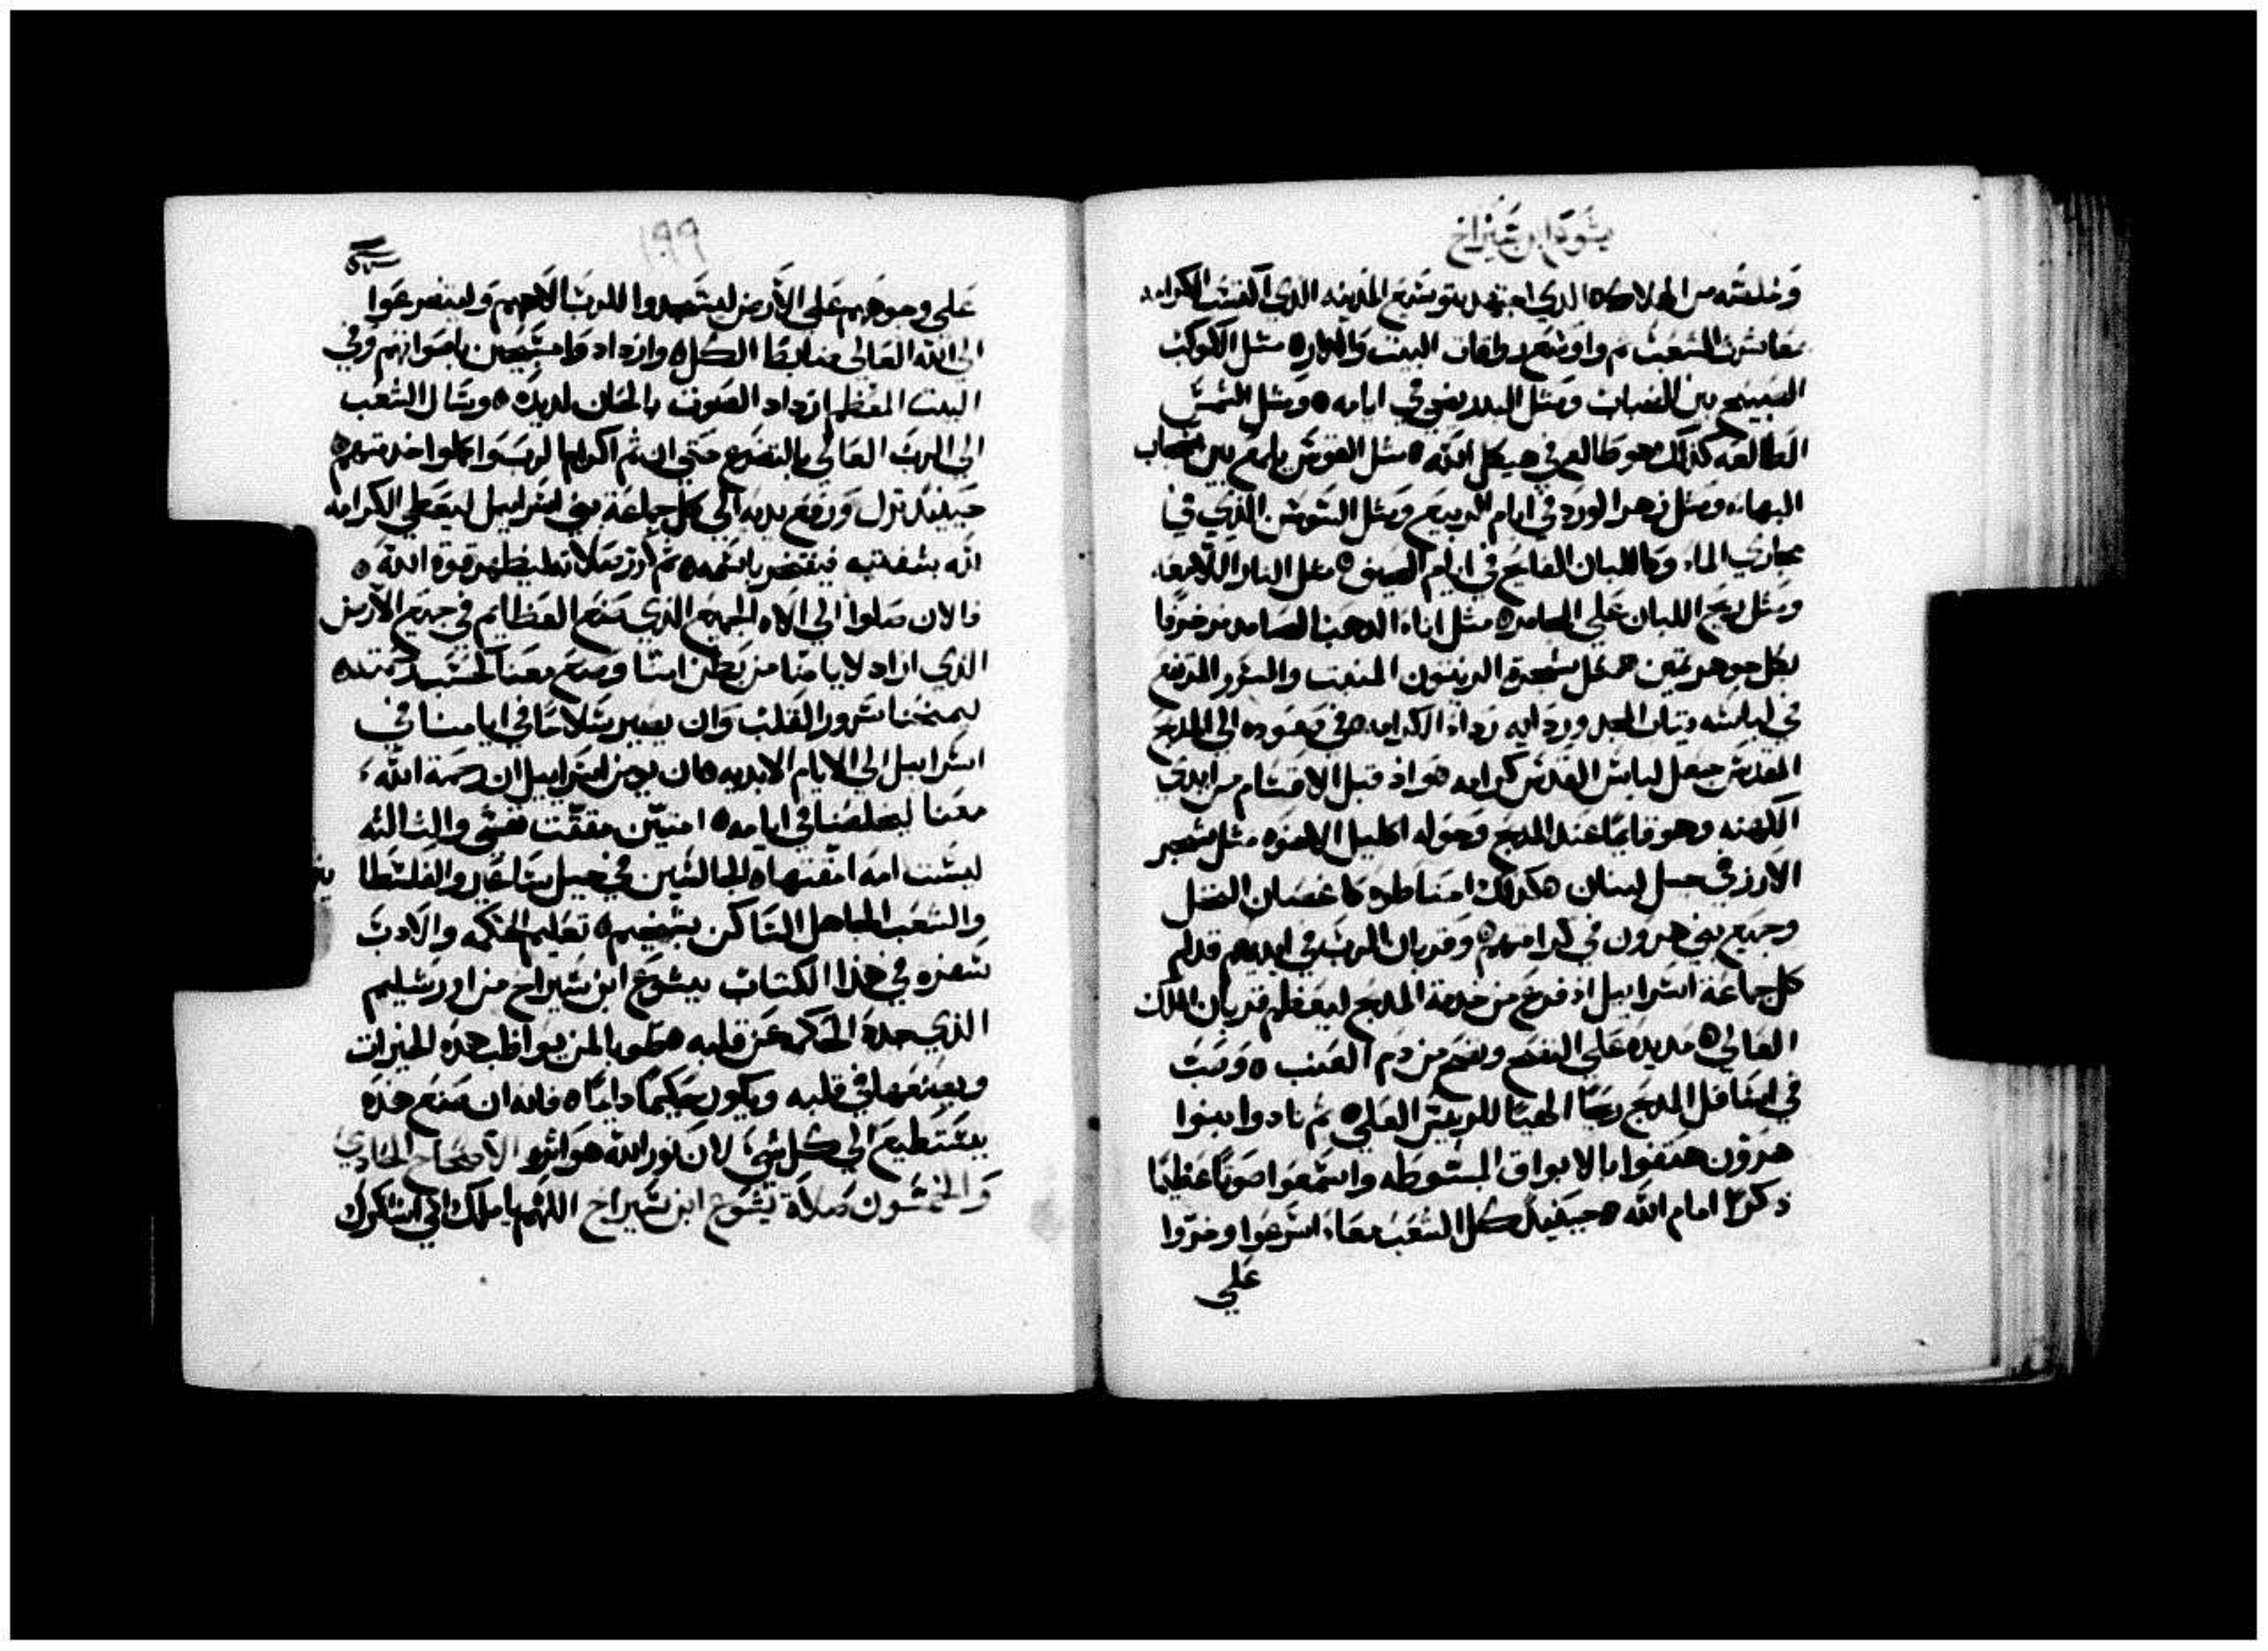 يشوع ابن شيراخ
وخلصته من الهلاك ٥ الذي اجتهد بتوشيع المدينه الذي اكتسب الكرامه
معاشرة الشعب ٥ واوسع طاقات البيت والدار ٥ مثل الكوكب
الصبيح بين الضباب ومثل البدر يضي في ايامه ٥ ومثل الشمس
الطالعه كذلك هو طالع في هيكل الله ٥ مثل القوس بلمع بين سحاب
البهاء ومثل زهر الورد في ايام الربيع ومثل السوسن الذي في
مجاري الماء وكاللبان الفايح في ايام الصيف ٥ مثل النار اللامعه
ومثل ريح اللبان علي المجامر ٥ مثل اناء الدهب الصامد مزخرفا
بكل جوهر تمين ٥ مثل شجرة الزيتون المنبت والسرو المرتفع
في لباسه تياب المجد وردايه رداء الكرامه ٥ في صعوده الي المذبح
المقدس جعل لباس القدس كرامه ٥ واذ قبل الاقسام من ايدي
الكهنه وهو قايما عند المذبح وحوله اكليل الاخوه مثل شجر
الارز في جبل لبنان هكدلك احتاطوه كاغصان النخل
وجميع بني هرون في كرامتهم ٥ وقربان الرب في ايديهم قدام
كل جماعة اسرابيل اذ فرغ من خدمة المذبح ليعظم قربان الملك
العالي ٥ مد يده علي النضح ونضح من دم العنب ٥ وصب
في اسافل المذبح ريحا الهيا للرييس العلي ٥ ثم نادوا بنوا
هرون هتفوا بالابواق المبسوطه واسمعوا صوتا عظيما
ذكرا امام الله ٥ حينيذ كل الشعب معا، اسرعوا وخروا
علي
١٩٩
علي وجوههم علي الارض ليسجدوا للرب الاههم وليتضرعوا
الي الله العالي ضابط الكل ٥ وازداد وامسبحين باصواتهم وفي
البيت المعظم ازداد الصوت بالحان لديده ٥ وسال الشعب
الي الرب العالي بالتضرع حتي ان تم اكرام الرب واكملوا خدمتهم ٥
حينيذ نزل ورفع يديه الي كل جماعة بني اسرابيل ليعطي الكرامه
لله بشفتيه فيفتخر باسمه ٥ ثم كرر صلاته ليظهر قوة الله ٥
فالان صلوا الي الاه الجميع الذي صنع العظايم في جميع الارض
الذي ازاد لايامنا من بطن امنا وصنع معنا كحسب رحمته ٥
ليمنحنا سرور القلب وان يصير سلاما في ايامنا في
اسرابيل الي الايام الابديه ٥ ان يومن اسرابيل ان رحمة الله
معنا ليخلصنا في ايامه ٥ امتين مقتت نفسي والتالته
ليست امه امقتها ٥ الجالسين في جبل ساعير والفلسطا
والشعب الجاهل الساكن بشخيم ٥ تعليم الحكمه والادب
سفره في هذا الكتاب يشوع ابن شيراخ من اورشليم
الذي جدد الحكمه من قلبه ٥ طوبا لمن يواظب هذه الخيرات
ويضعها في قلبه ويكون حكيما دايما ٥ فانه ان صنع هذه
يستطيع الي كل شي، لان نور الله هو اثره الاصحاح الحادي
والخمسون صلاة يشوع ابن شيراخ اللهم يا ملك اني اشكرك